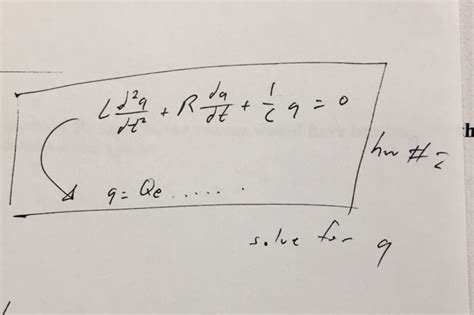 L d²q/dt² + R dq/dt + 1/C q = 0
q = Qe ......
hw # 2
solve for q
h